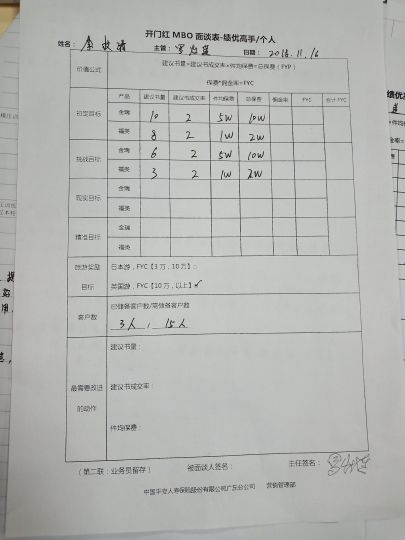 开门红 MBO 面谈表-绩优高手/个人
姓名: 主管: 日期: 2018.11.16
价值公式 建议书量*建议书成交率*件均保费=总保费(FYP)
保费*佣金率=FYC
产品 建议书量 建议书成交率 件均保费 总保费 佣金率 FYC 合计FYC
初定目标 金瑞 10 2 5W 10W
福英 8 2 1W 2W
挑战目标 金瑞 6 2 5W 10W
福英 3 2 1W 2W
现实目标 金瑞
福英
精准目标 金瑞
福英
旅游奖励目标 日本游,FYC【3万,10万】:
英国游,FYC【10万,以上】✓
客户数 已储备客户数/需储备客户数
3人, 15人
最需要改进的动作 建议书量:
建议书成交率:
件均保费:
(第二联:业务员留存) 被面谈人签名: 主任签名:
中国平安人寿保险股份有限公司广东分公司 营销管理部